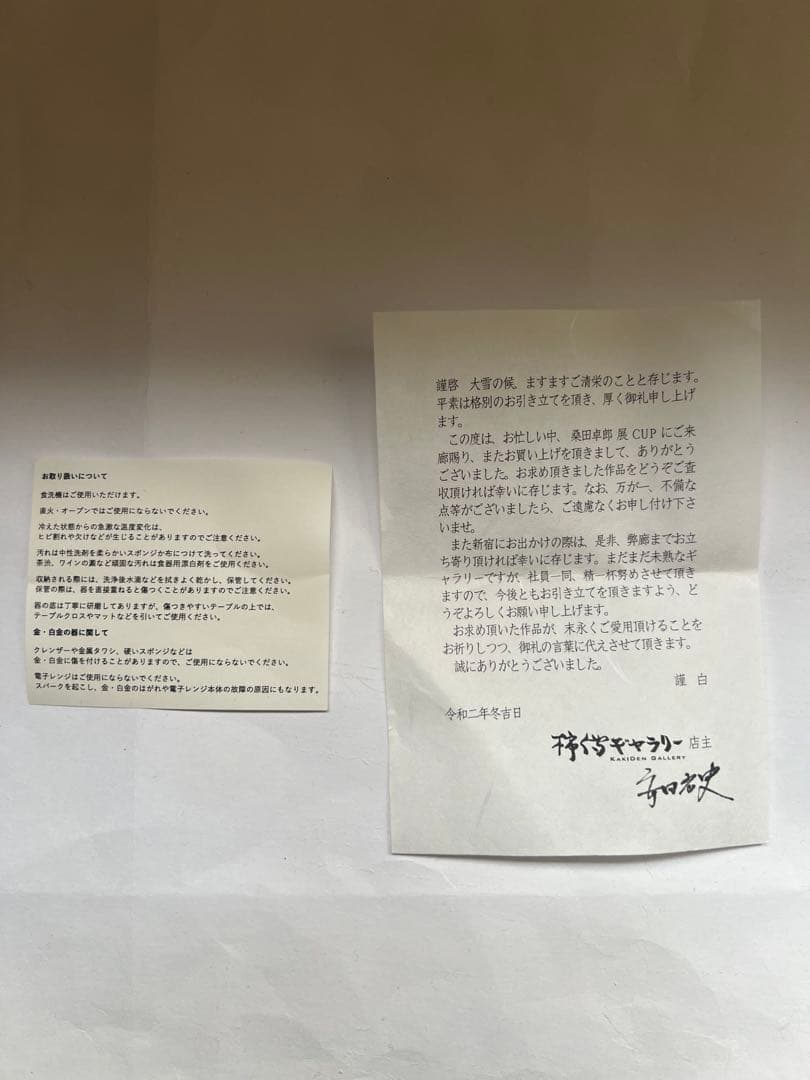 お取り扱いについて
食洗機はご使用いただけます。
直火・オーブンではご使用にならないでください。
冷えた状態からの急激な温度変化は、
ヒビ割れや欠けなどが生じることがありますのでご注意ください。
汚れは中性洗剤を柔らかいスポンジか布につけて洗ってください。
茶渋、ワインの澱など頑固な汚れは食器用漂白剤をご使用ください。
収納される際には、洗浄後水滴などを拭きよく乾かし、保管してください。
保管の際は、器を直接重ねると傷つくことがありますのでご注意ください。
器の底は丁寧に研磨してありますが、傷つきやすいテーブルの上では、
テーブルクロスやマットなどを引いてご使用ください。
金・白金の器に関して
クレンザーや金属タワシ、硬いスポンジなどは
金・白金に傷を付けることがありますので、ご使用にならないでください。
電子レンジはご使用にならないでください。
スパークを起こし、金・白金のはがれや電子レンジ本体の故障の原因にもなります。
謹啓　大雪の候、ますますご清栄のことと存じます。
平素は格別のお引き立てを頂き、厚く御礼申し上げ
ます。
この度は、お忙しい中、桑田卓郎 展 CUP にご来
廊賜り、またお買い上げを頂きまして、ありがとう
ございました。お求め頂きました作品をどうぞご査
収頂ければ幸いに存じます。なお、万が一、不備な
点等がございましたら、ご遠慮なくお申し付け下さ
いませ。
また新宿にお出かけの際は、是非、弊廊までお立
ち寄り頂ければ幸いに存じます。まだまだ未熟なギ
ャラリーですが、社員一同、精一杯努めさせて頂き
ますので、今後ともお引き立てを頂きますよう、ど
うぞよろしくお願い申し上げます。
お求め頂いた作品が、末永くご愛用頂けることを
お祈りしつつ、御礼の言葉に代えさせて頂きます。
誠にありがとうございました。
謹 白
令和二年冬吉日
柿傳ギャラリー 店主
KAKIDEN GALLERY